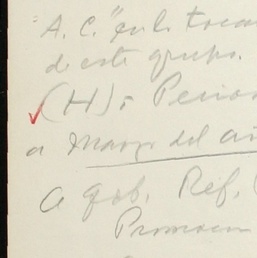 A. C." en lo toca
de este grupo.
(H): Perio
a Marzo del añ
a gob. Ref.
Promoci